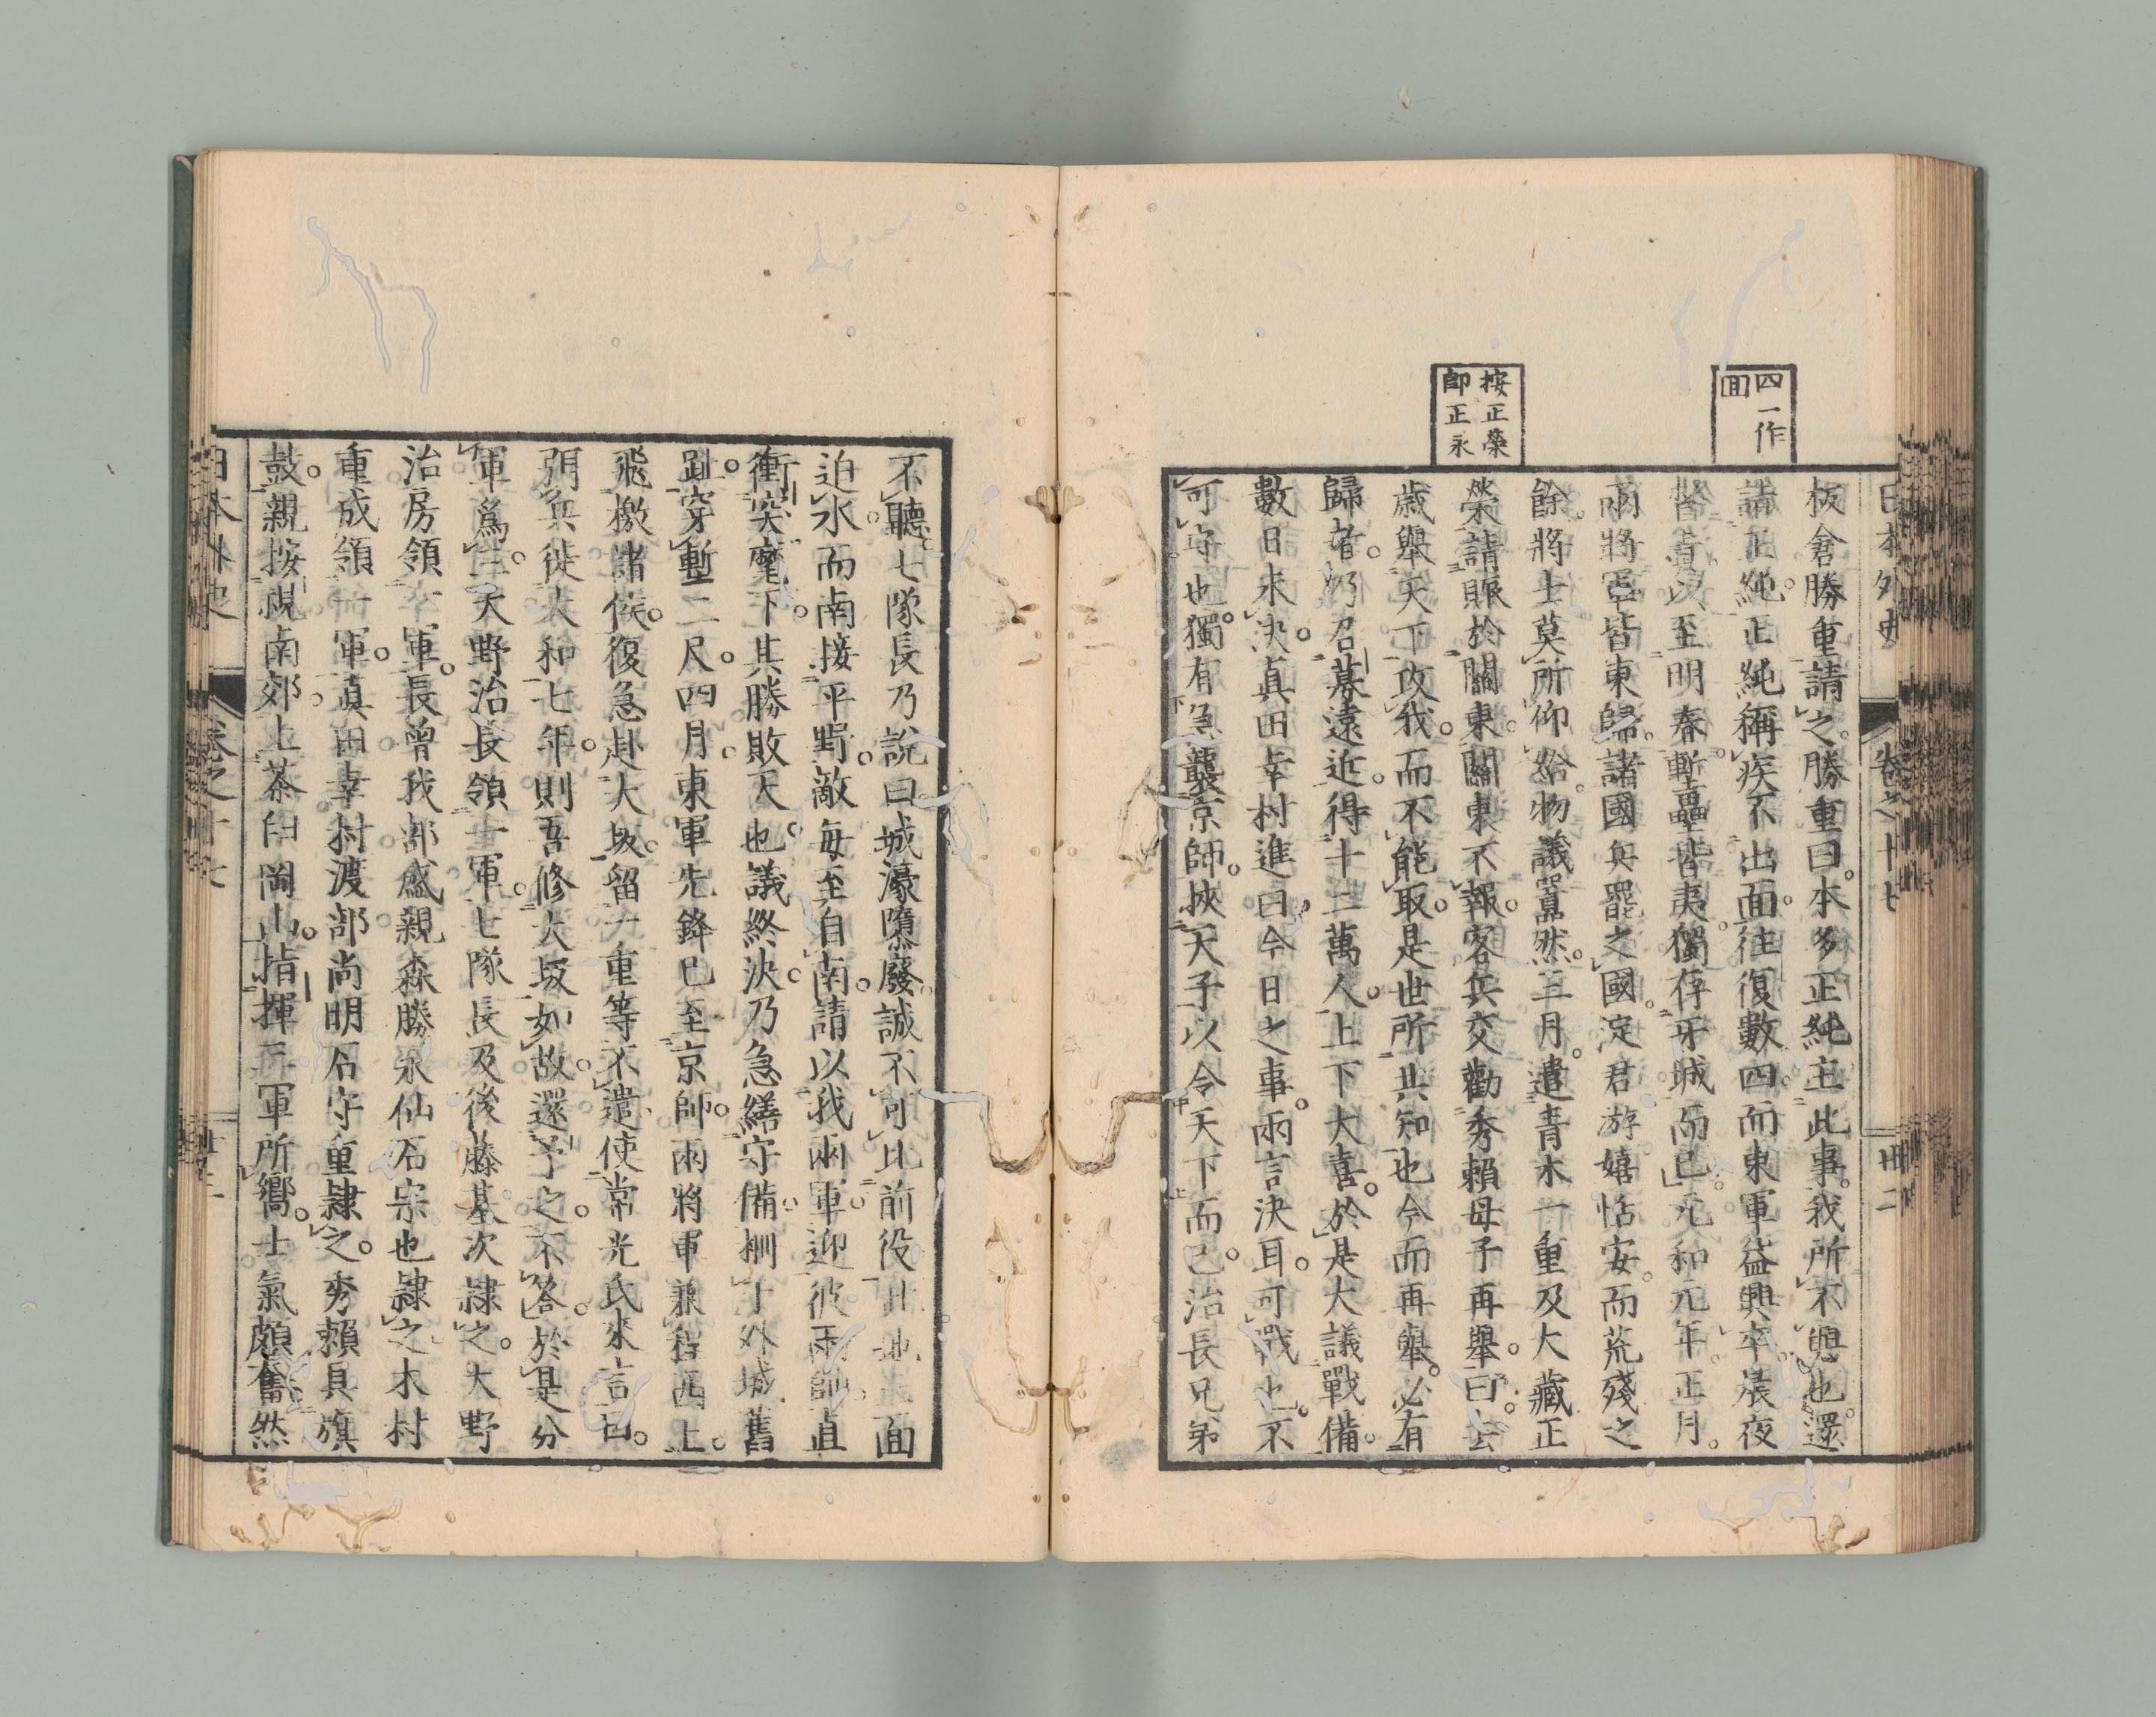 四一作
面
按正榮
即正永
日本外史 卷之十七 廿二
板倉勝重請之。勝重曰。本多正純主此事。我所不與也。還
請正純。正純稱疾不出面。往復數四。而東軍益興卒。晨夜
督責。以至明春。塹壘皆夷。獨存牙城而已。元和元年。正月。
兩將軍皆東歸。諸國兵罷之國。淀君游嬉恬安。而荒殘之
餘。將士莫所仰給。物議囂然。三月。遣青木一重及大藏正
榮。請賑於關東。關東不報。客兵交勸秀賴母子再舉。曰。去
歲舉天下攻我。而不能取。是世所共知也。今而再舉。必有
歸者。乃召募遠近。得十二萬人。上下大喜。於是大議戰備。
數日未決。眞田幸村進曰。今日之事。兩言決耳。可戰也。不
可守也。獨有急襲京師。挾天子以令天下而已。治長兄弟
不聽。七隊長乃說曰。城濠隳廢。誠不可比前役。此地三面
迫水。而南接平野。敵每至自南。請以我兩軍。迎彼兩帥。直
衝突麾下。其勝敗天也。議終決。乃急繕守備。柵于外城舊
趾。穿塹二尺。四月。東軍先鋒已至京師。兩將軍兼程西上。
飛檄諸侯。復急赴大坂。留一重等不遣。使常光氏來言曰。
弭兵徙大和七年。則吾修大坂如故。還予之。不答。於是分
軍爲三。大野治長領一軍。七隊長及後藤基次隸之。大野
治房領一軍。長曾我部盛親。森勝永。仙石宗也隸之。木村
重成領一軍。眞田幸村。渡部尚。明石守重隸之。秀賴具旗
鼓。親按視南郊。上茶臼岡山。指揮三軍所嚮。士氣頗奮。然
日本外史 卷之十七